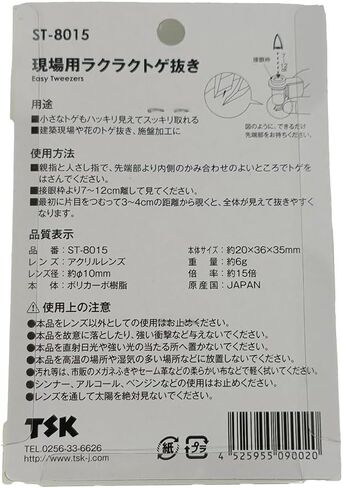 ST-8015
現場用ラクラクトゲ抜き
Easy Tweezers
用途
■小さなトゲもハッキリ見えてスッキリ取れる
■建築現場や花のトゲ抜き、施盤加工に
接眼枠
7~12cm
図のように、できるだけ
先端部をお持ちください。
使用方法
■親指と人さし指で、先端部より内側のかみ合わせのよいところでトゲを
はさんでください。
■接眼枠より7〜12cm離して見てください。
■最初に片目をつむって3〜4cmの距離から覗くと、全体が見えて抜きやすく
なります。
品質表示
品番：ST-8015
本体サイズ：約20×36×35mm
レンズ：アクリルレンズ
重量：約6g
レンズ径：約φ10mm
倍率：約15倍
本体：ポリカーボ樹脂
原産国：JAPAN
使用上の注意
●本品をレンズ以外としての使用はお止めください。
●本品を故意に落としたり、強い衝撃など与えないでください。
●本品を直射日光や強い光の当たる所へ置かないでください。
●本品を高温の場所や湿気の多い場所などに放置しないでください。
●汚れ等は、市販のメガネふきやセーム革などの柔らかい布などで軽く拭いてください。
●シンナー、アルコール、ベンジンなどの使用はお止めください。
●レンズを通して太陽を絶対見ないでください。
TSK
TEL.0256-33-6626
http://www.tsk-j.com
紙
プラ
4 525955 090020